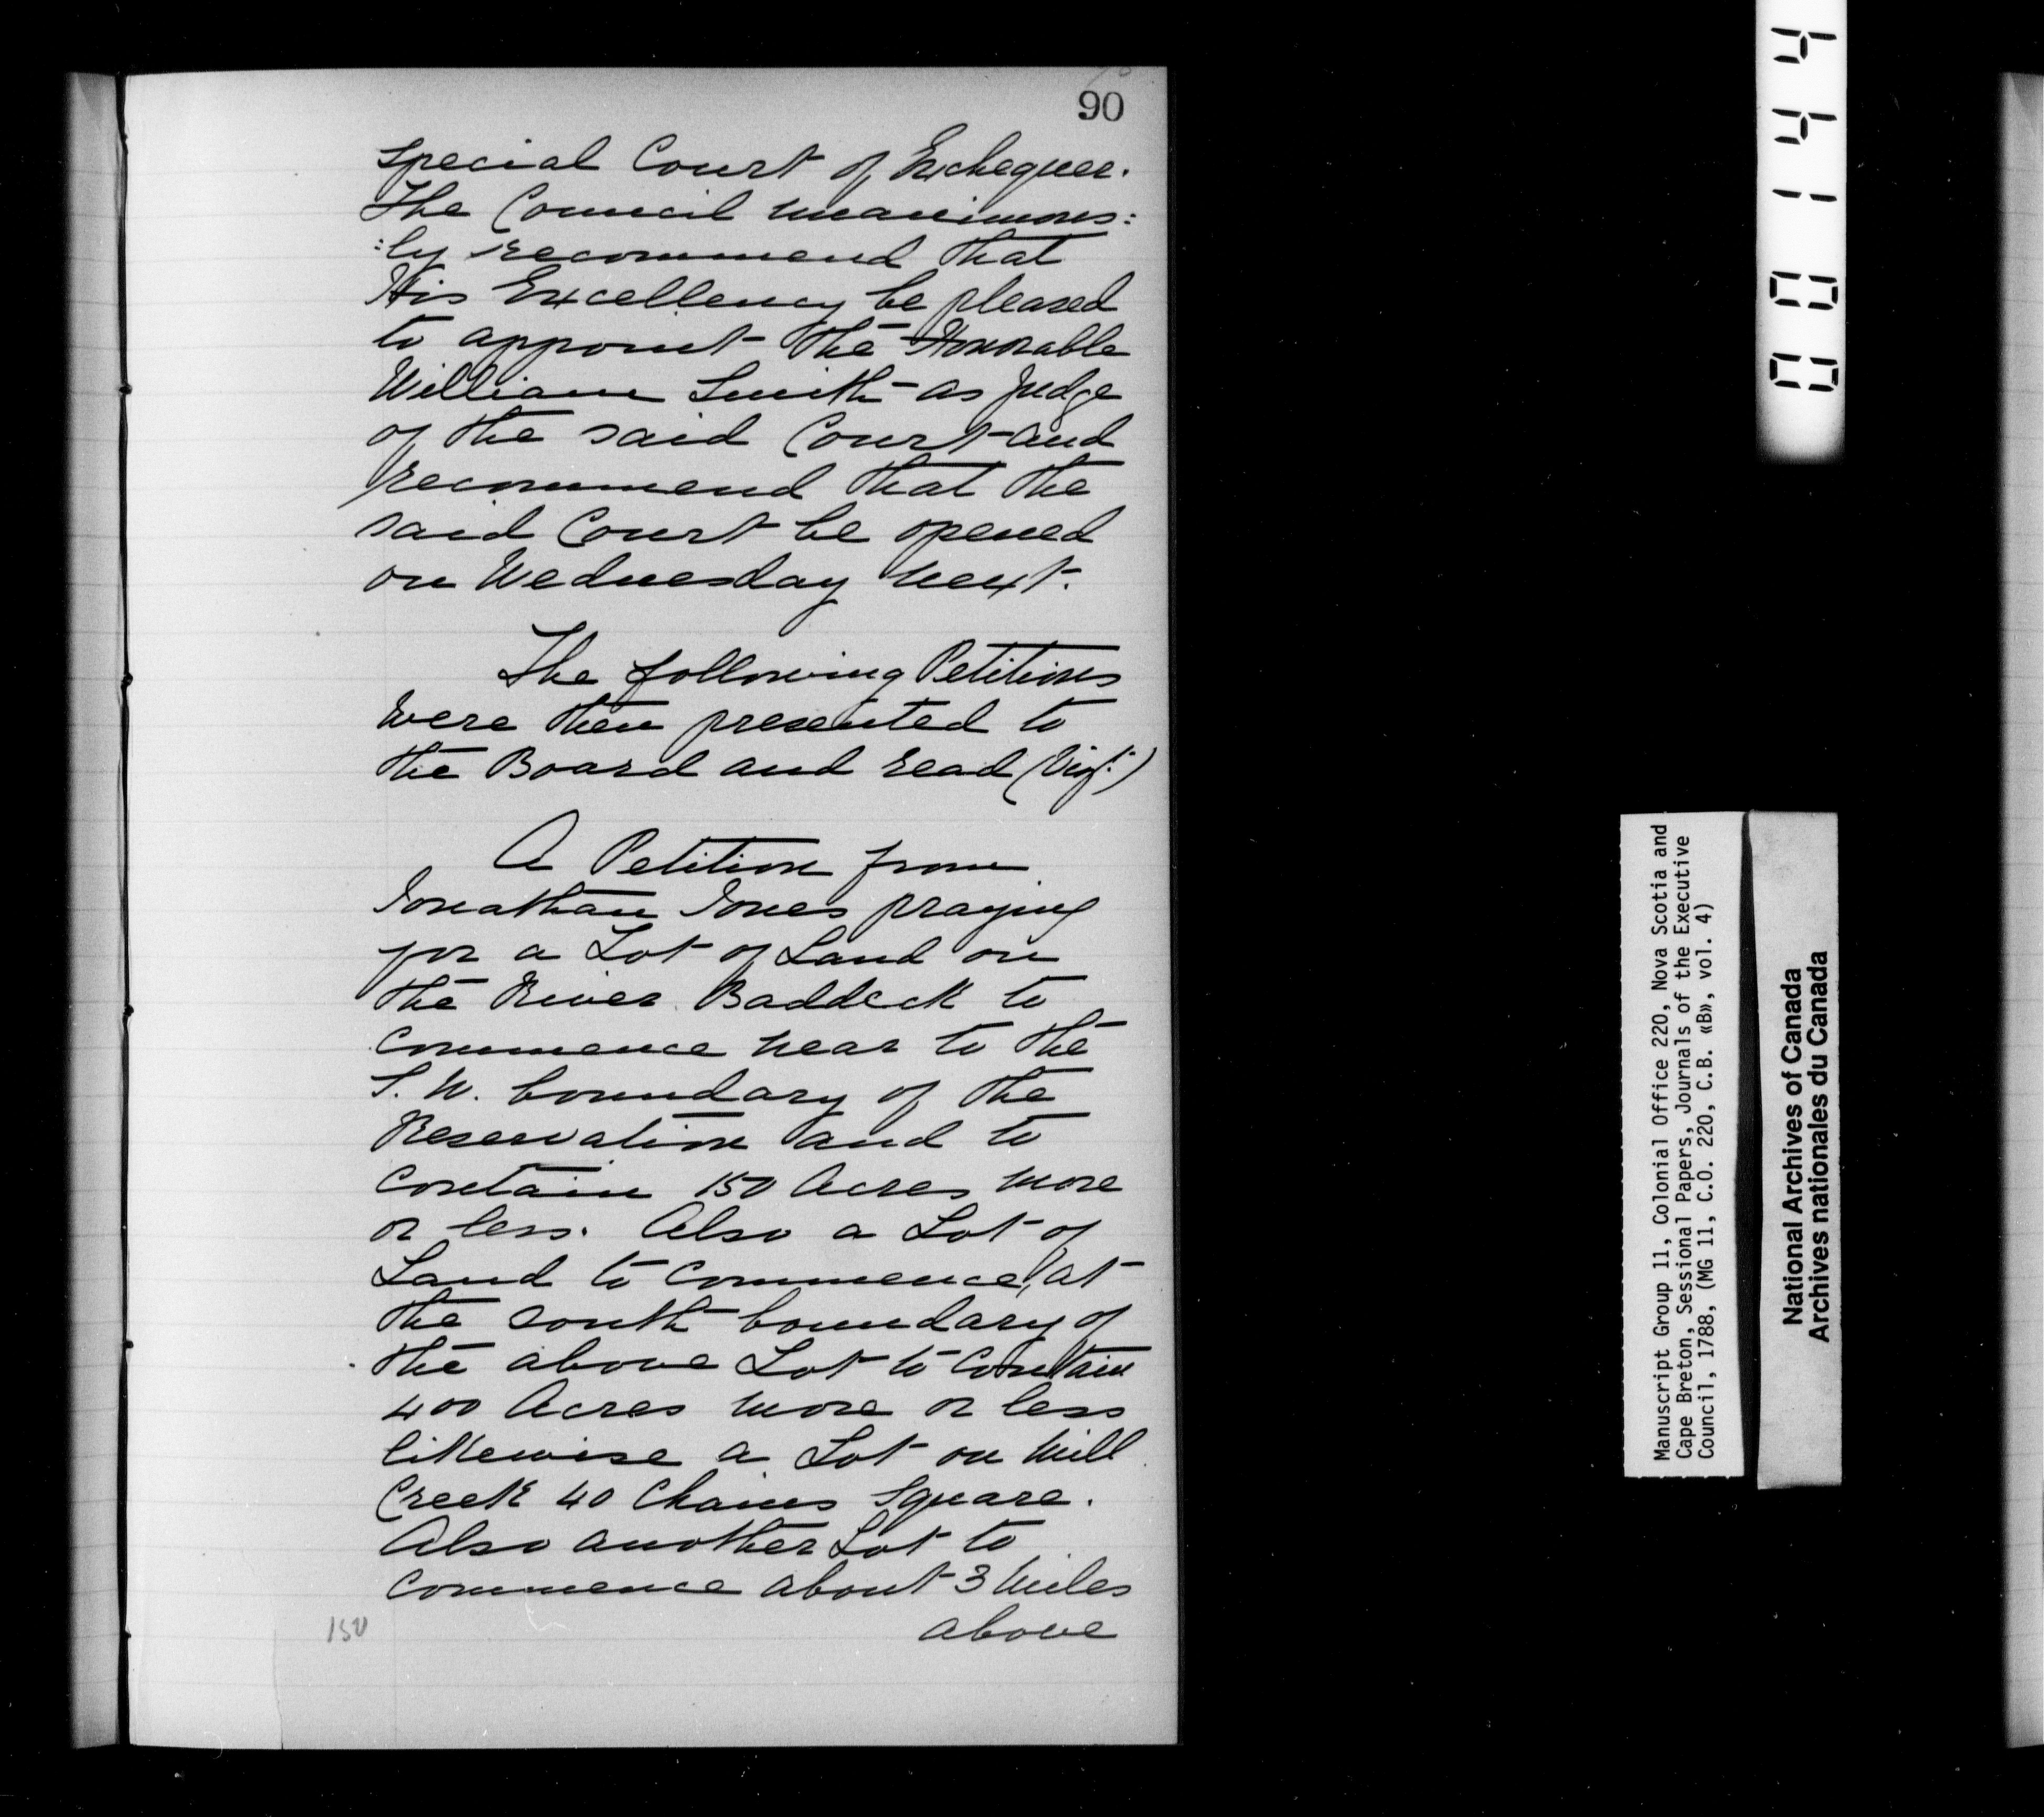 90
special Court of Exchequer.
The Council unanimous:
:ly recommend that
His Excellency be pleased
to appoint the Honorable
William Smith as Judge
of the said Court and
recommend that the
said Court be opened
on Wednesday next.
The following Petitions
were then presented to
the Board and read (Vizt:)
A Petition from
Jonathan Jones praying
for a Lot of Land on
the River Baddeck to
commence near to the
S. W. boundary of the
Reservation and to
contain 150 Acres more
or less. Also a Lot of
Land to commence at
the south boundary of
the above Lot to contain
400 Acres more or less
likewise a Lot on Mill
Creek 40 Chains Square.
Also another Lot to
commence about 3 Miles
above
150
00144
Manuscript Group 11, Colonial Office 220, Nova Scotia and
Cape Breton, Sessional Papers, Journals of the Executive
Council, 1788, (MG 11, C.O. 220, C.B. «B», vol. 4)
National Archives of Canada
Archives nationales du Canada